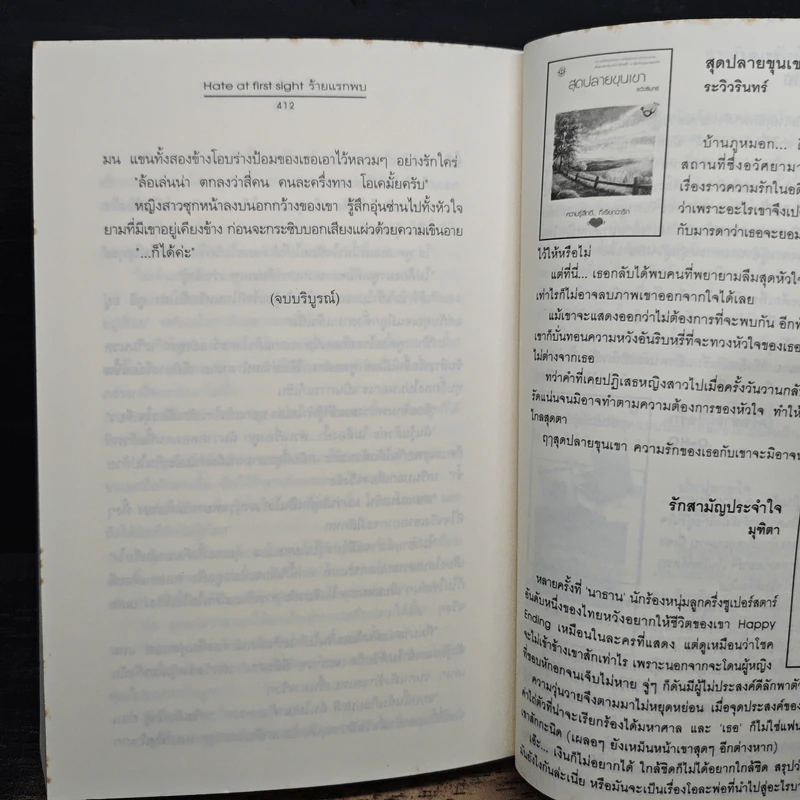 Hate at first sight ร้ายแรกพบ
412
มน แขนทั้งสองข้างโอบร่างป้อมของเธอเอาไว้หลวมๆ อย่างรักใคร่
"ล้อเล่นน่า ตกลงว่าสี่คน คนละครึ่งทาง โอเคมั้ยครับ"
หญิงสาวซุกหน้าลงบนอกกว้างของเขา รู้สึกอุ่นซ่านไปทั้งหัวใจ
ยามที่มีเขาอยู่เคียงข้าง ก่อนจะกระซิบบอกเสียงแผ่วด้วยความเขินอาย
"...ก็ได้ค่ะ"
(จบบริบูรณ์)
สุดปลายขุนเขา
ระวิวรินทร์
ความรู้สึกดี... ที่เรียกว่ารัก
สุดปลายขุนเขา
ระวิวรินทร์
บ้านภูหมอก...
สถานที่ซึ่งอวัศยามา
เรื่องราวความรักในอดี
ว่าเพราะอะไรเขาจึงเป
กับมารดาว่าเธอจะยอม
ไว้ให้หรือไม่
แต่ที่นี่... เธอกลับได้พบคนที่พยายามลืมสุดหัวใจ
เท่าไรก็ไม่อาจลบภาพเขาออกจากใจได้เลย
แม้เขาจะแสดงออกว่าไม่ต้องการที่จะพบกัน อีกทั
เขาก็บั่นทอนความหวังอันริบหรี่ที่จะทวงหัวใจของเธอ
ไม่ต่างจากเธอ
ทว่าคำที่เคยปฏิเสธหญิงสาวไปเมื่อครั้งวันวานกลั
รัดแน่นจนมิอาจทำตามความต้องการของหัวใจ ทำให้
ไกลสุดตา
ฤาสุดปลายขุนเขา ความรักของเธอกับเขาจะมิอาจ
รักสามัญประจำใจ
มุฑิตา
หลายครั้งที่ 'นาธาน' นักร้องหนุ่มลูกครึ่งซูเปอร์สตาร์
อันดับหนึ่งของไทยหวังอยากให้ชีวิตของเขา Happy
Ending เหมือนในละครที่แสดง แต่ดูเหมือนว่าโชค
จะไม่เข้าข้างเขาสักเท่าไร เพราะนอกจากจะโดนผู้หญิง
ที่รอบหักอกจนเจ็บไม่หาย จู่ๆ ก็ดันมีผู้ไม่ประสงค์ดีลักพาตั
ความวุ่นวายจึงตามมาไม่หยุดหย่อน เมื่อจุดประสงค์ของ
ค่าไถ่ตัวที่น่าจะเรียกร้องได้มหาศาล และ 'เธอ' ก็ไม่ใช่แฟน
เขาสักกะนิด (เผลอๆ ยังเหม็นหน้าเขาสุดๆ อีกต่างหาก)
เอ๊ะ... เงินก็ไม่อยากได้ ใกล้ชิดก็ไม่ได้อยากใกล้ชิด สรุปว่
มันยังไงกันล่ะเนี่ย หรือมันจะเป็นเรื่องโอละพ่อที่นำไปสู่อะไรบา